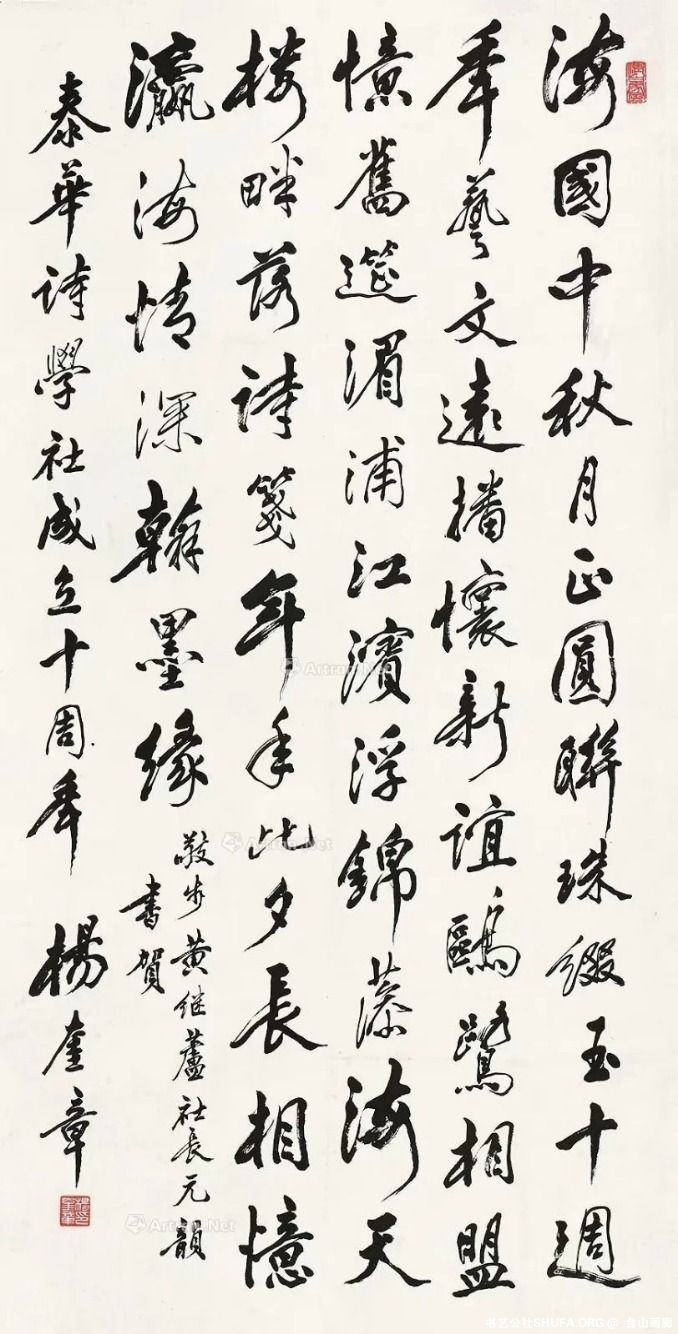 海國中秋月正圓聯珠綴玉十週
年藝文遠播懷新誼鷗鷺相盟
憶舊筵湄浦江濱浮錦藻海天
樓畔落詩箋年年此夕長相憶
瀛海情深翰墨緣
敬步黄继蘆社長元韻
書賀
泰華詩學社成立十周年 楊奎章
Artron.Net
Artron.Net
Artron.Net
书艺公社SHUFA.ORG @ 台山画廊